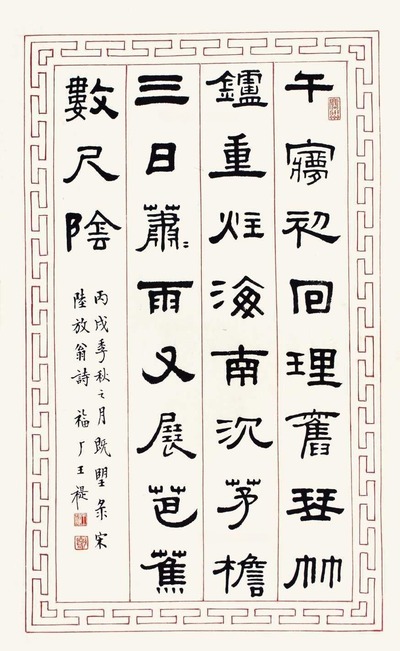 午㝱初回理舊琴竹
鑪重炷海南沉茅檐
三日蕭〻雨又展芭蕉
數尺陰
丙戌季秋之月既朢彔宋
陸放翁詩 福厂王禔